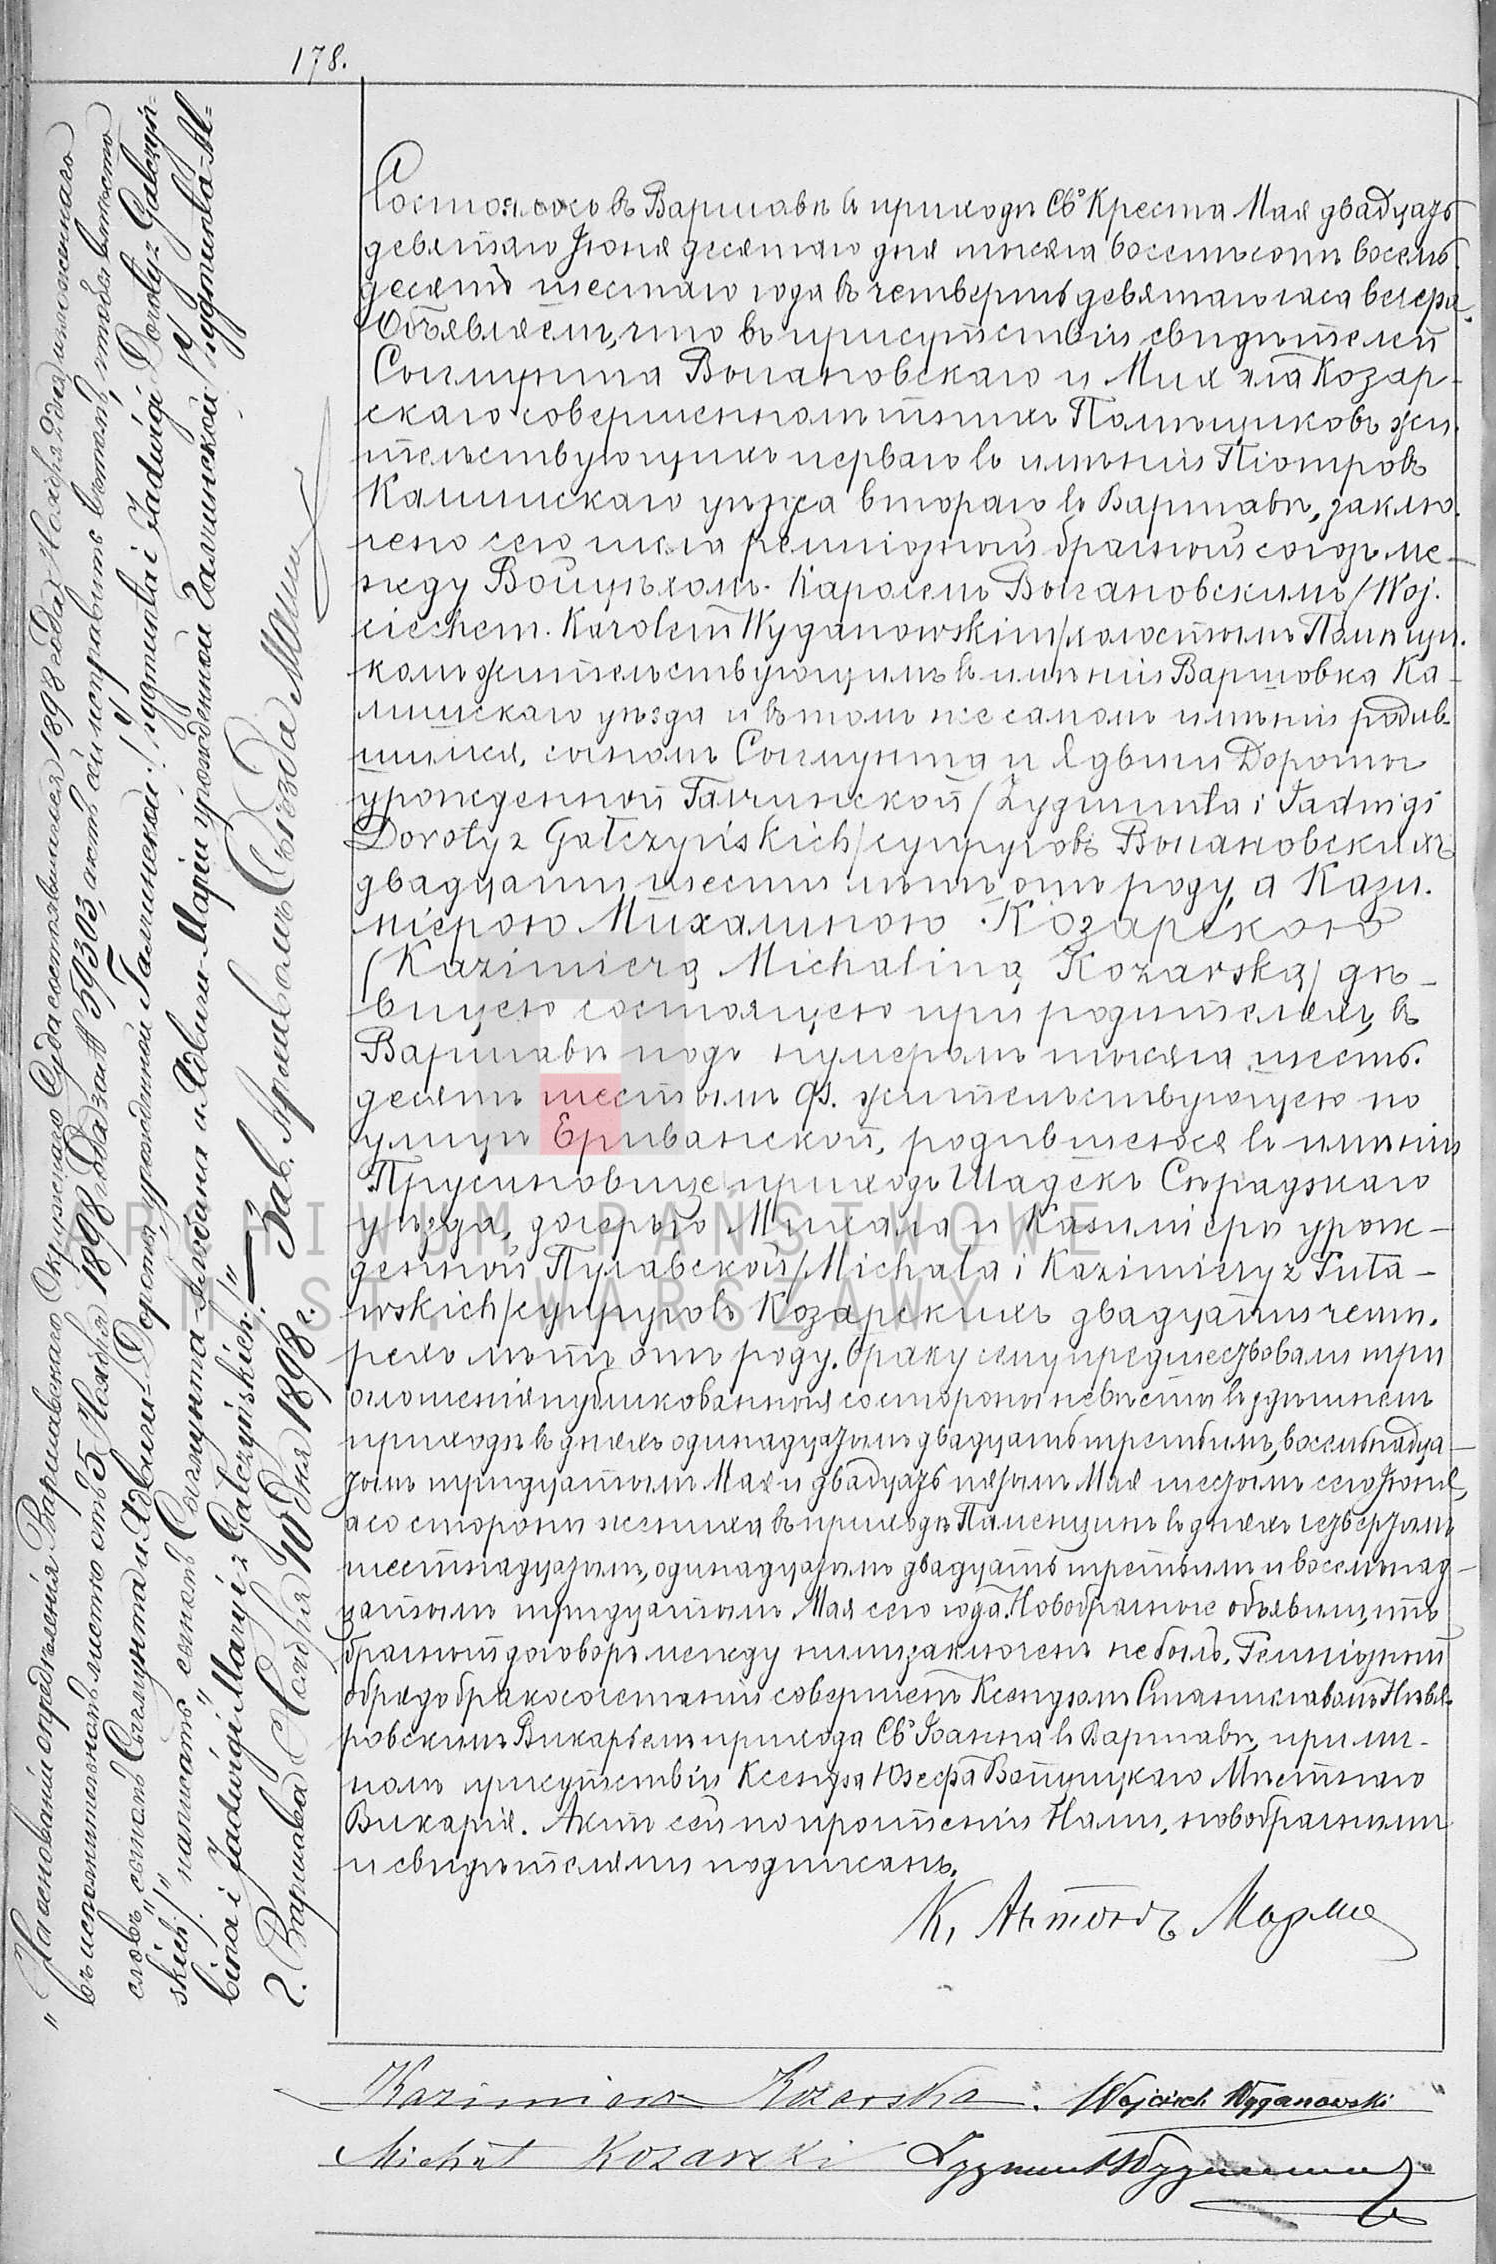 178.
Состоялось въ Варшавѣ въ приходѣ Св. Креста Мая двадцать
девятаго Іюня десятаго дня тысяча восемьсотъ восемь-
десятъ шестаго года въ четверть девятаго часа вечера.
Объявляемъ, что въ присутствіи свидѣтелей
Сигизмунда Выгановскаго и Михала Козар-
скаго совершеннолѣтнихъ Помѣщиковъ жи-
тельствующихъ перваго въ имѣніи Піотровъ
Калишскаго уѣзда втораго въ Варшавѣ, заклю-
чено сего числа религіозный брачный союзъ ме-
жду Войцѣхомъ-Каролемъ Выгановскимъ /Woj-
ciechem-Karolem Wyganowskim/ холостымъ Помѣщи-
комъ жительствующимъ въ имѣніи Варшовка Ка-
лишскаго уѣзда и въ томъ же самомъ имѣніи родив-
шимся, сыномъ Сигмунта и Ядвиги Дороты
урожденной Галчинской /Zygmunta i Jadwigi
Doroty z Gałczyńskich/ супруговъ Выгановскихъ
двадцати шести лѣтъ отъ роду, а Кази-
мірою Михалиною Козарскою
/Kazimierą Michaliną Kozarską/ дѣ-
вицею состоящею при родителяхъ, въ
Варшавѣ подъ нумеромъ тысяча шесть-
десятъ шестымъ Ф. жительствующею по
улицѣ Ериванской, родившеюся въ имѣніи
Прусиновице приходъ Шадекъ Сѣрадзкаго
уѣзда, дочерью Михала и Казиміры урож-
денной Пулавской /Michała i Kazimiery z Puła-
wskich/ супруговъ Козарскихъ двадцати четы-
рехъ лѣтъ отъ роду. Браку сему предшествовали три
оглашенія публикованныя со стороны невѣсты въ здѣшнемъ
приходѣ въ дняхъ одинадцатомъ двадцать третьимъ, восемнадца-
томъ тридцатомъ Мая и двадцать пятомъ Мая шестомъ сего Іюня,
а со стороны жениха въ приходѣ Паменцинъ въ дняхъ четвертомъ
шестнадцатомъ, одинадцатомъ двадцать третьимъ и восемнад-
цатомъ тридцатомъ Мая сего года. Новобрачные объявили, что
брачный договоръ между ними заключенъ не былъ. Религіозный
обрядъ бракосочетанія совершенъ Ксендзомъ Станиславомъ
ровскимъ Викаріемъ прихода Св. Іоанна въ Варшавѣ, при лич-
номъ присутствіи Ксендза Юзефа Войцицкаго Мѣстнаго
Викарія. Актъ сей по прочтеніи Нами, новобрачными
и свидѣтелями подписанъ.
К. Антонъ
Kazimiera Kozarska. Wojciech Wyganowski
Michał Kozarski
„На основаніи опредѣленія Варшавскаго Окружнаго Суда состоявшагося 1898 года Ноября дня изложеннаго
въ исполнительномъ листѣ отъ 5 Ноября 1898 года за № 59303, актъ сей исправить въ томъ, чтобы вмѣсто
словъ „сынъ Сигмунта и Ядвиги-Дороты урожденной Галчинской /Zygmunta i Jadwigi Doroty z Gałczyń-
skich/" написать „сынъ Сигмунта-Альбина и Ядвиги-Маріи урожденной Галчинской /Zygmunta-Al-
bina i Jadwigi Maryi z Gałczyńskich/".
г. Варшава Ноября 10 дня 1898 г. Зав. Архивомъ Съѣзда